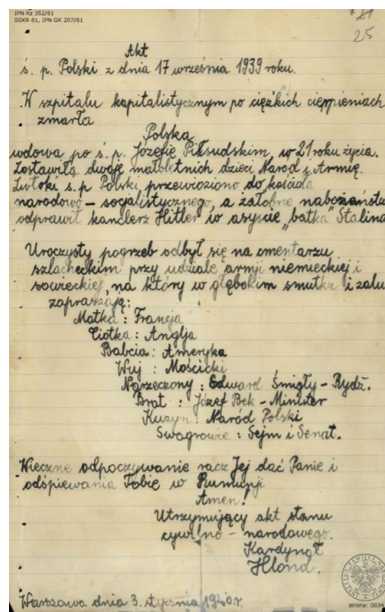 IPN Rz 252/61
SSKR 61, IPN GK 207/61
25
Akt
ś. p. Polski z dnia 17 września 1939 roku.
W szpitalu kapitalistycznym po ciężkich cierpieniach
zmarła
Polska
wdowa po ś. p. Józefie Piłsudskim, w 21 roku życia.
Zostawiła dwoje małoletnich dzieci Naród i Armię.
Zwłoki ś. p. Polski przewieziono do kościoła
narodowo - socjalistycznego, a żałobne nabożeństwo
odprawił kanclerz Hitler w asyście "batka" Stalina
Uroczysty pogrzeb odbył się na cmentarzu
szlacheckim przy udziale armji niemieckiej i
sowieckiej, na który w głębokim smutku i żalu
zapraszają:
Matka: Francja
Ciotka: Anglja
Babcia: Ameryka
Wuj: Mościcki
Narzeczony: Edward Śmigły - Rydz.
Brat: Józef Bek - Minister
Kuzyn: Naród Polski
Swagrowie: Sejm i Senat.
Wieczne odpoczywanie racz Jej dać Panie i
odśpiewania Tobie w Rumunji
Amen!
Utrzymujący akt stanu
cywilno - narodowego.
Kardynał
Hlond.
Warszawa dnia 3. stycznia 1940 r.